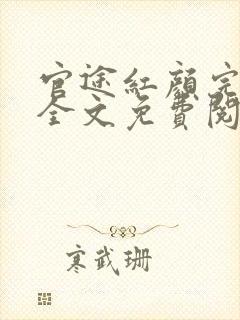 官途紅顏完
全文免費閱
寒武珊